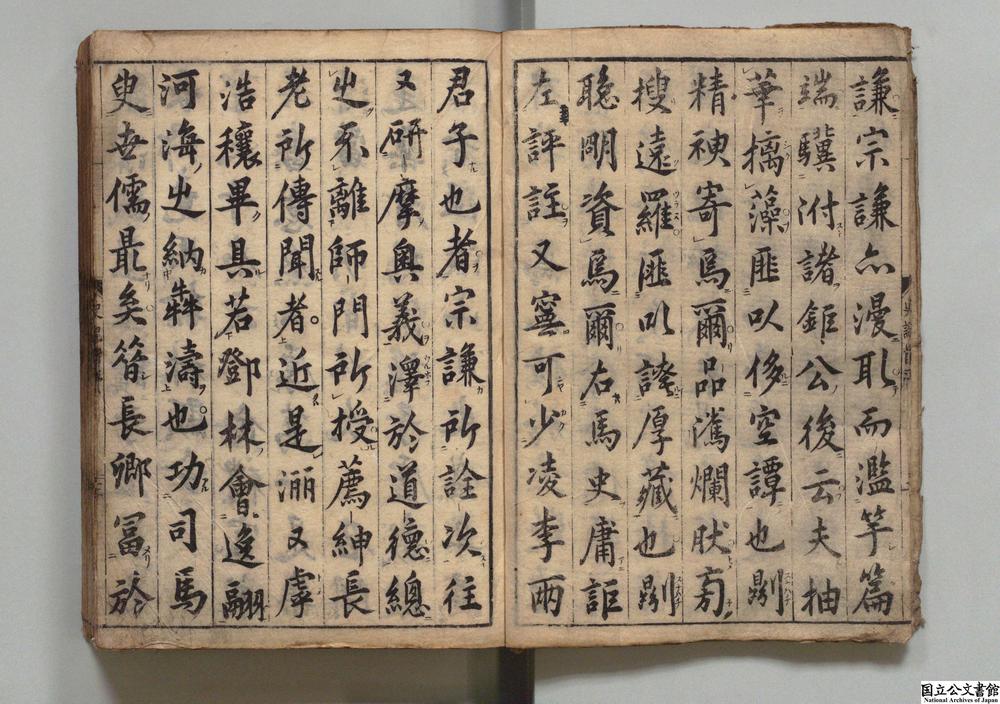 謙宗謙亦漫耴而濫竽篇
端驥泭諸鉅公後云夫抽
華摛藻匪以侈空譚也剬
精神寄焉爾品濿爛肰有
搜遠羅匪以誇厚藏也剬
聰明資焉爾右馬史庸詎
左評註又寧可少凌李兩
君子也者宗謙所詮次往
又研摩奥義澤於道德緫
㞢不離師門所授薦紳長
老所傳聞者近是洏又虖
浩穰畢具若鄧林會逸翮
河海㞢納犇濤也功司馬
叟㔺儒最矣筞長卿冨於
国立公文書館
National Archives of Japan